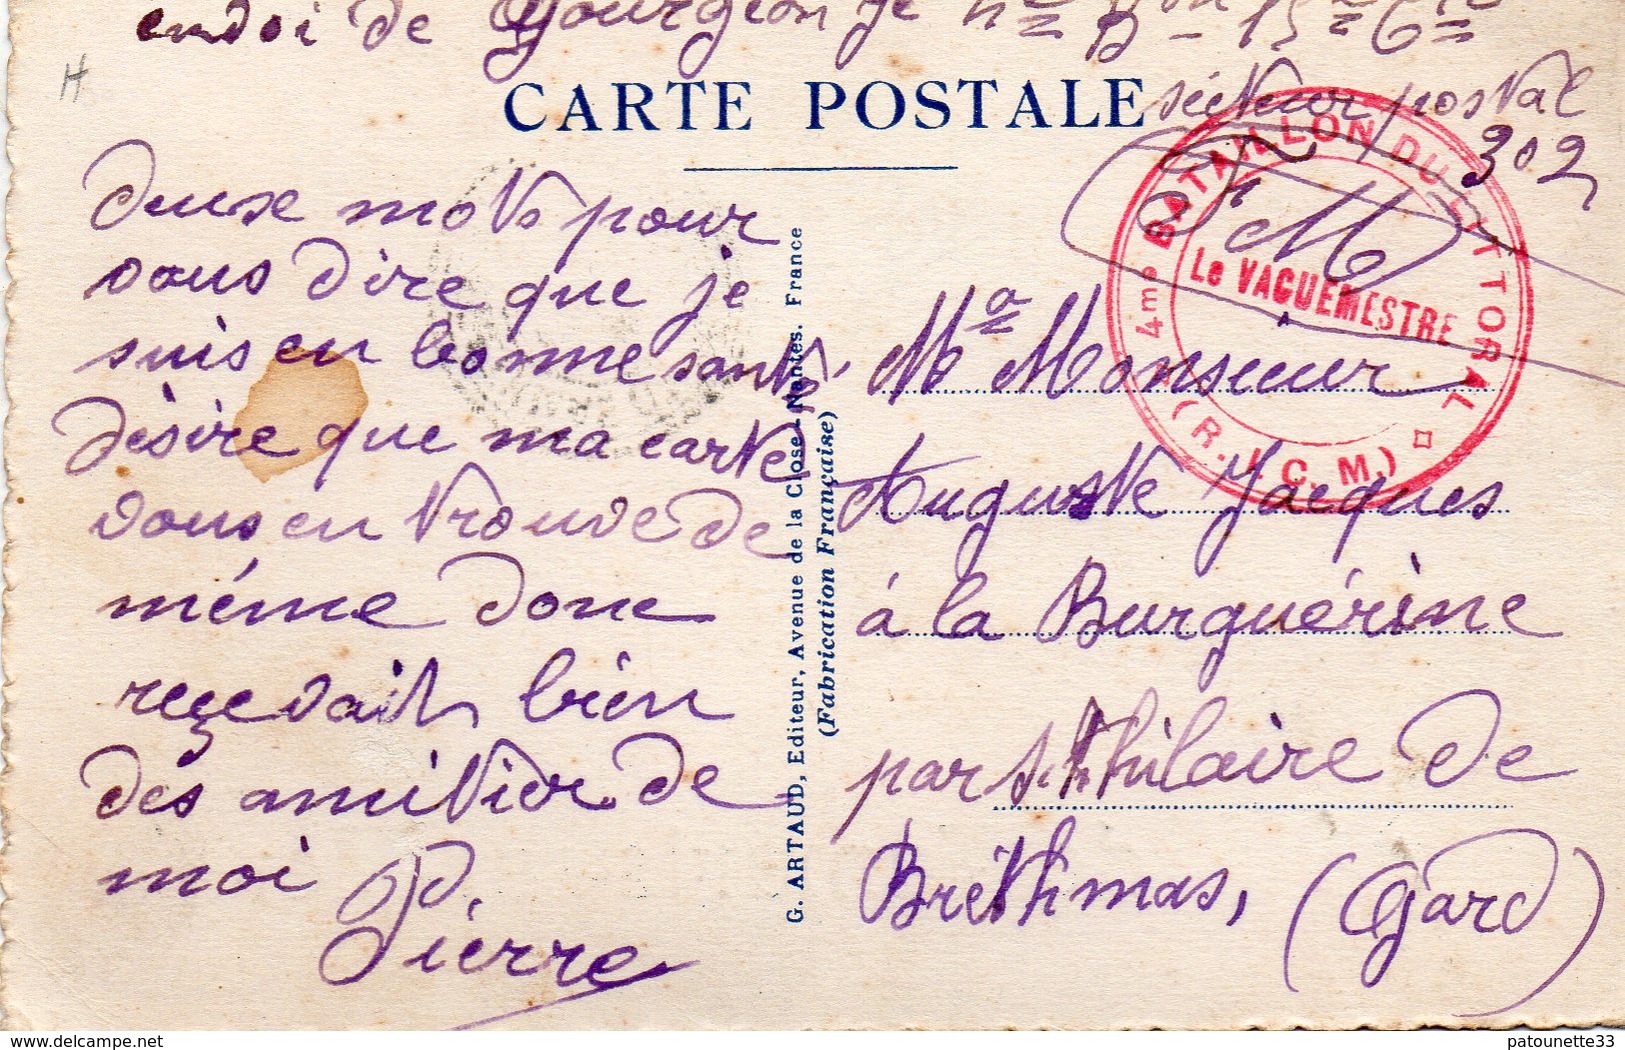 endoi de Gourgeon je 4me Bon 15me Cie
secteur postal
302
H
CARTE POSTALE
F M
4me BATAILLON DU LITTORAL
Le VAGUEMESTRE
(R. I. C. M.)
deuse mots pour
vous dire que je
suis en bonne santé
désire que ma carte
vous en trouve de
méme donc
reçevait bien
des amitier de
moi
P.
Pierre
G. ARTAUD, Editeur, Avenue de la Close - Nantes. France
(Fabrication Française)
Monsieur
Auguste Jacques
á la Burguérine
par st hilaire de
Bréthmas, (Gard)
patounette33